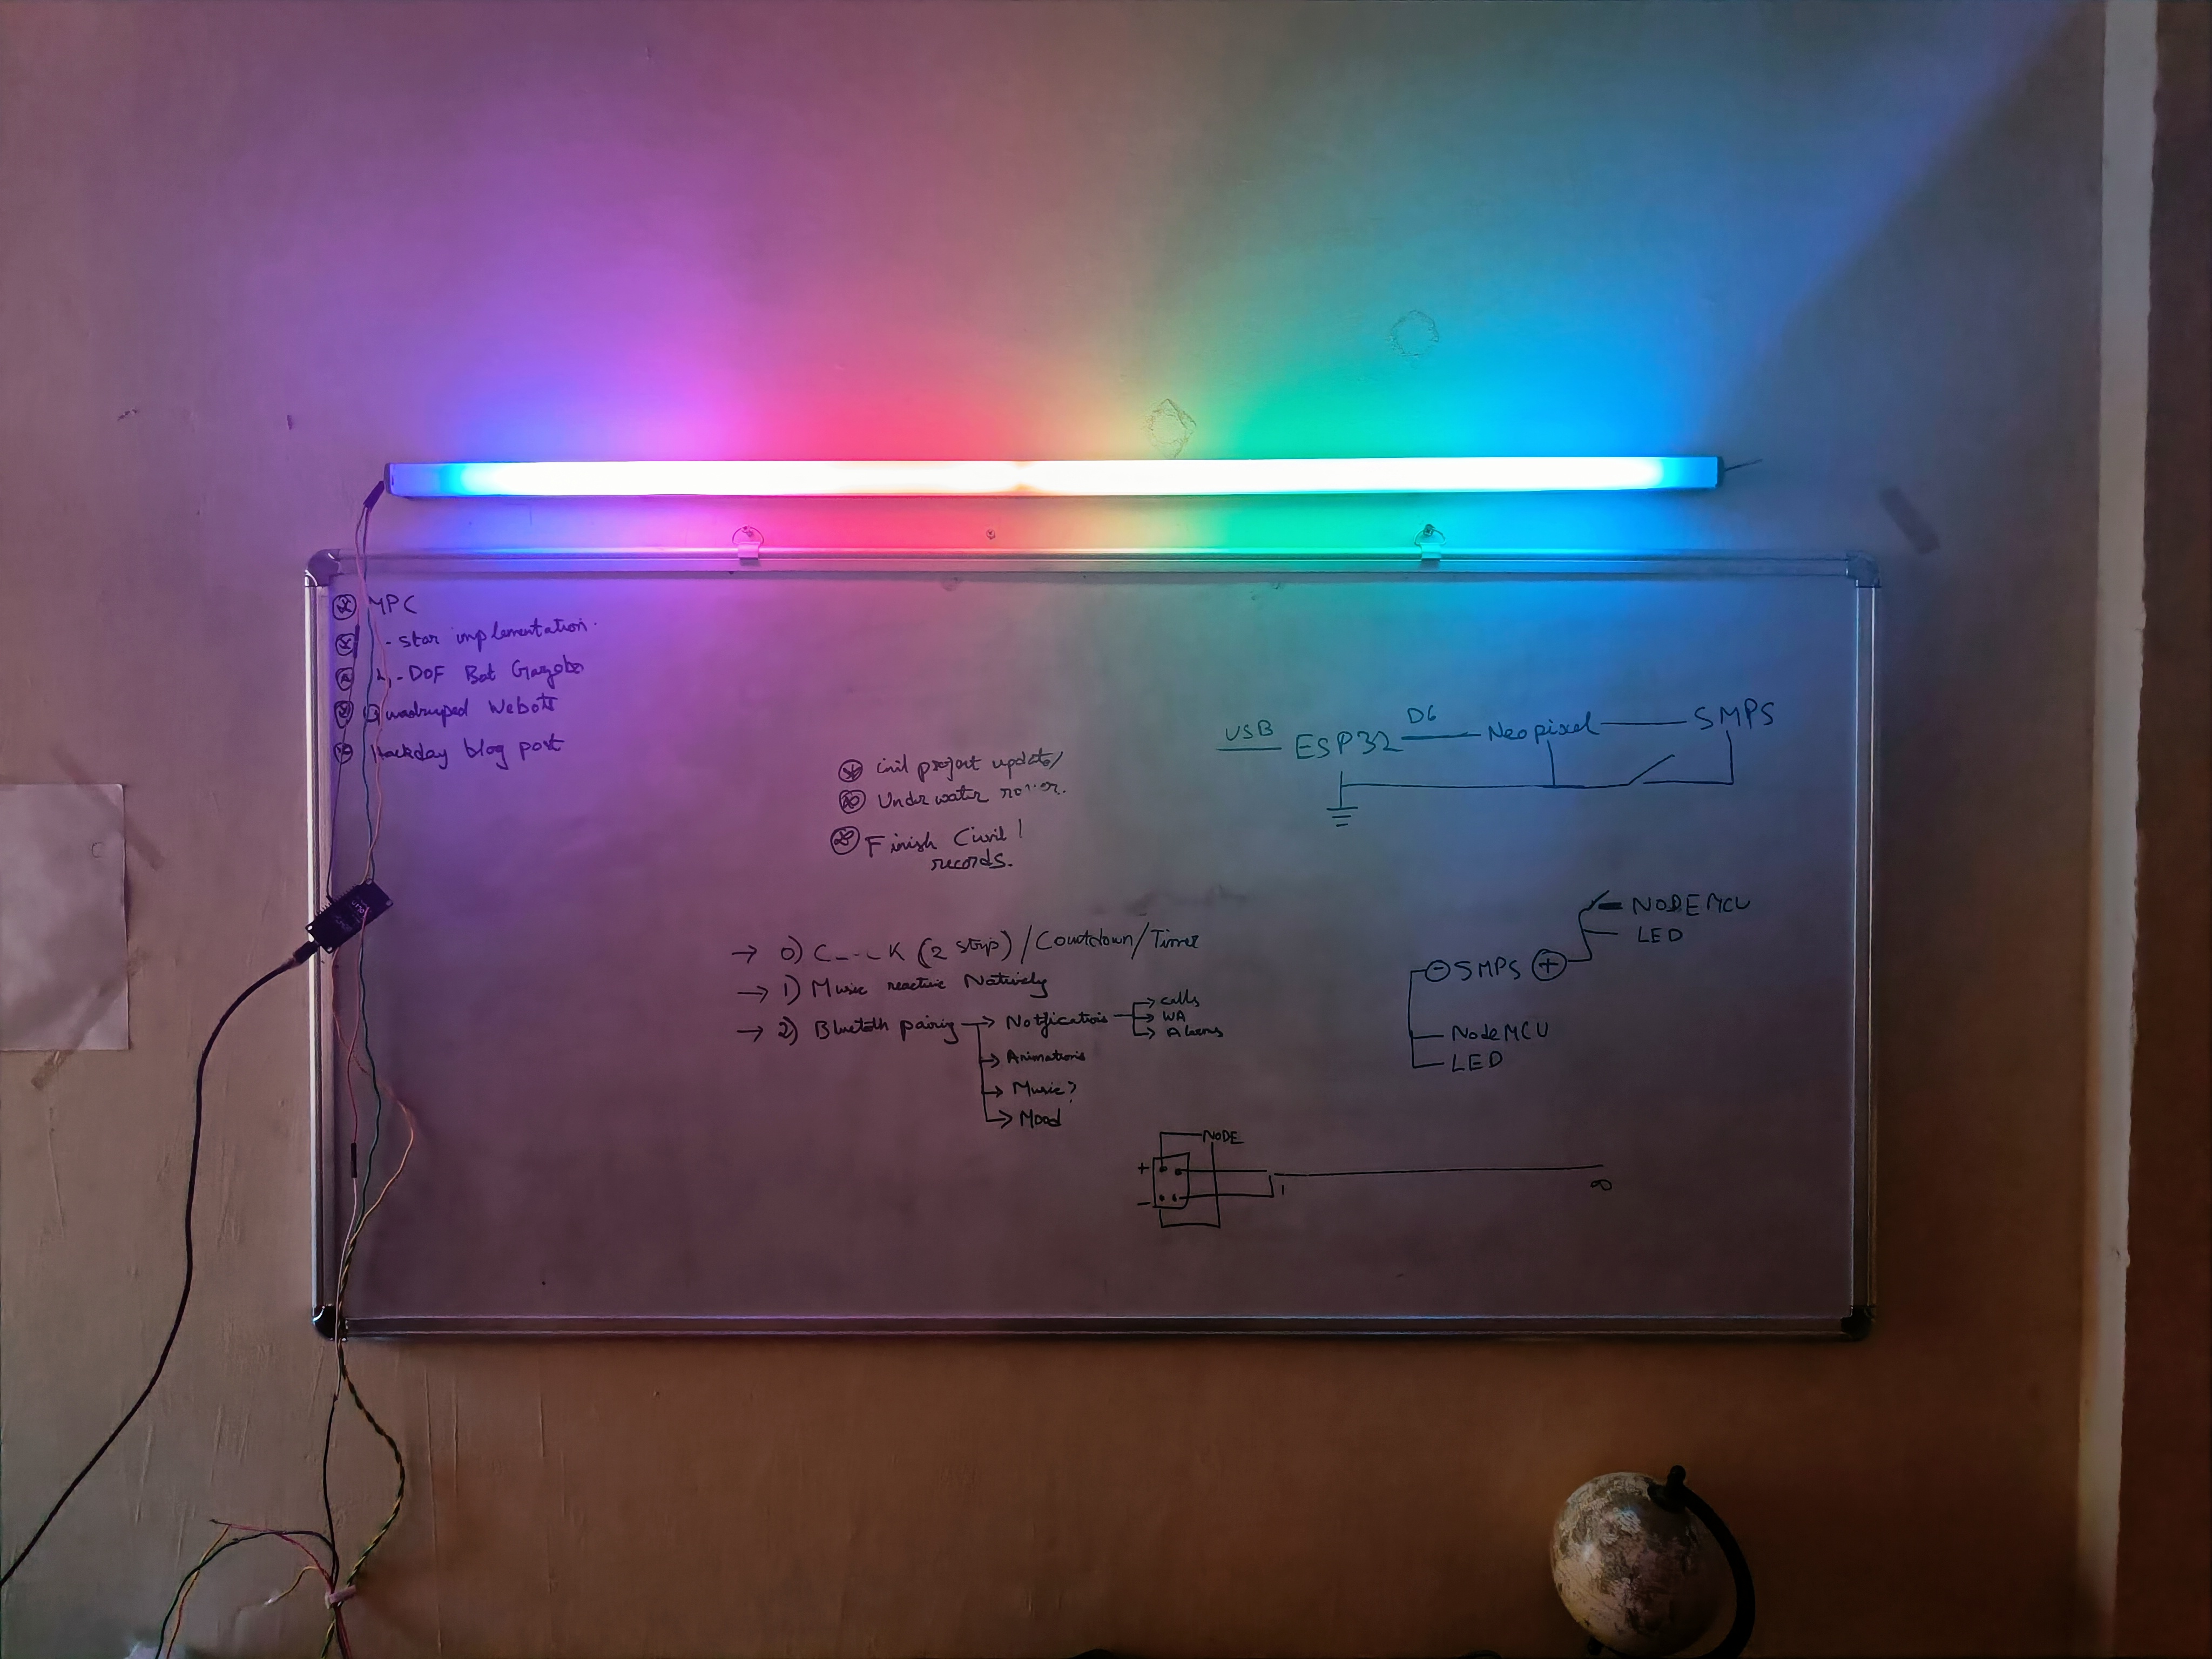 MPC
-star implementation.
-DOF Bot Gazebo
Quadruped Webots
Hackday blog post
Civil project update/
Under water rover.
Finish Civil
records.
USB ESP32 D6 Neopixel SMPS
NODEMCU
LED
- SMPS +
NodeMCU
LED
→ 0) C---K (2 strip) / Countdown/Timer
→ 1) Music reactive Natively
→ 2) Bluetoth pairing → Notfications → Calls
→ WA
→ Alarms
→ Animations
→ Music?
→ Mood
NODE
+
-
1